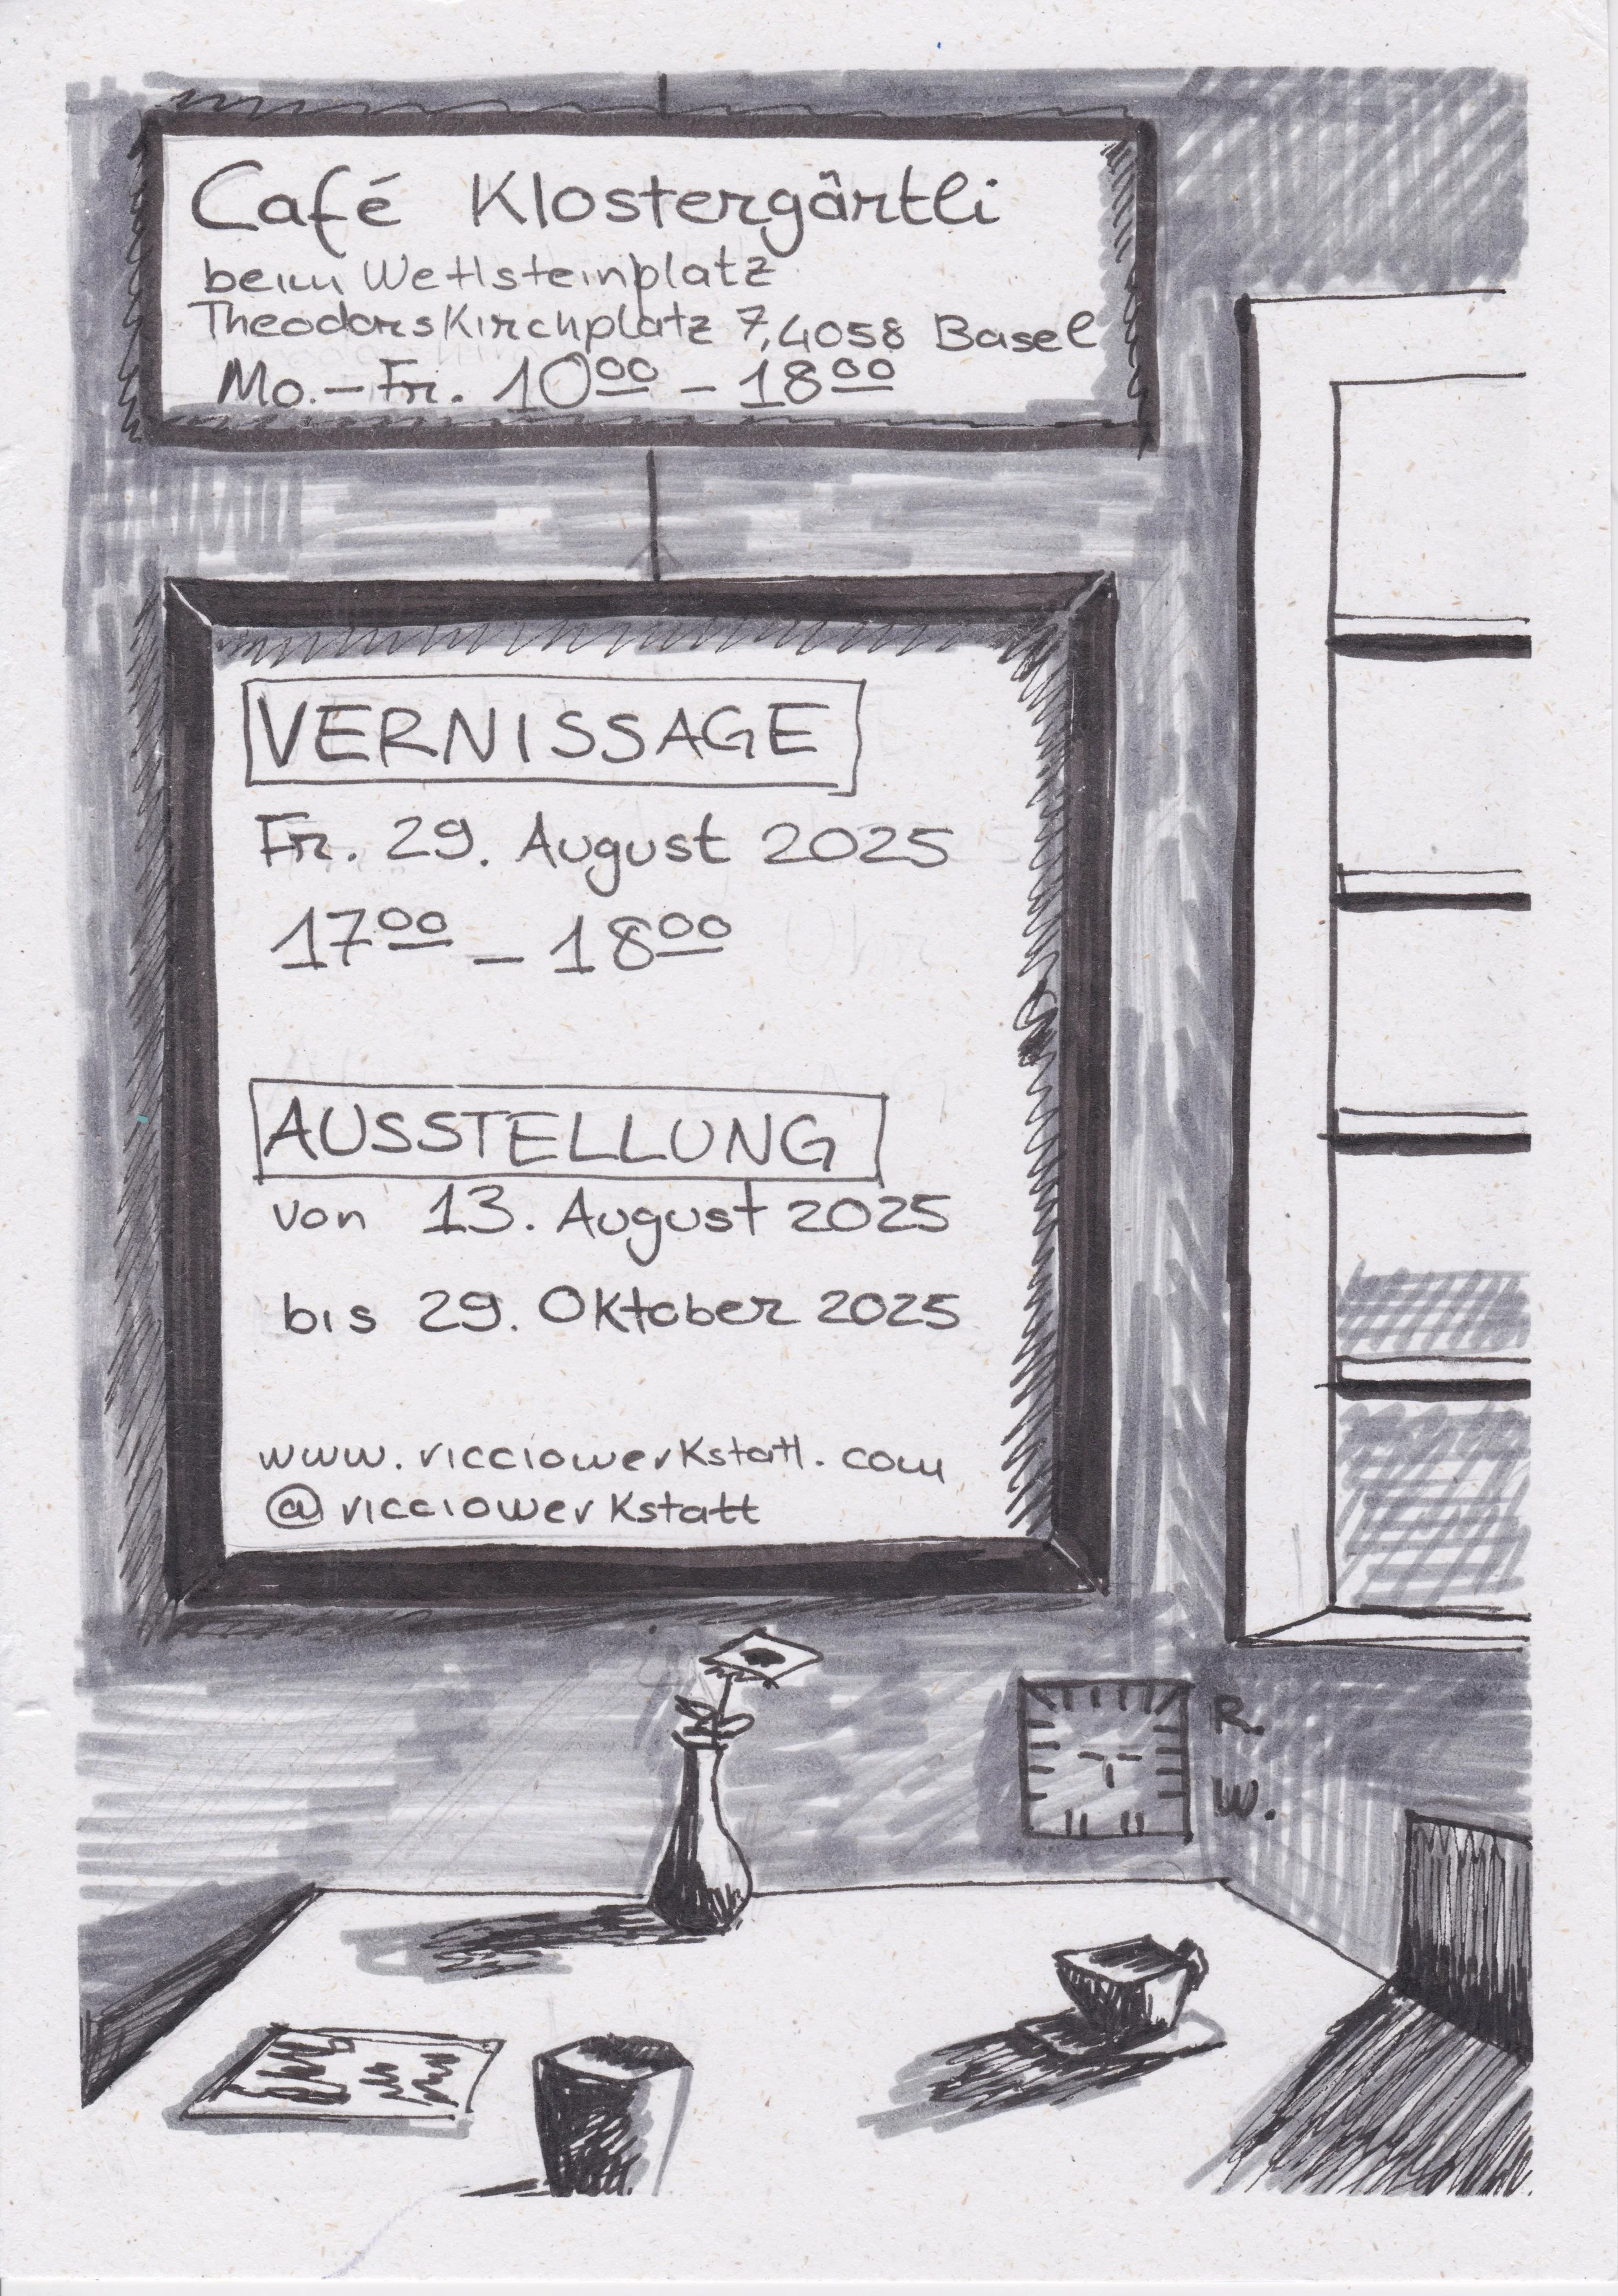 Café Klostergärtli
beim Wettsteinplatz
Theodorskirchplatz 7, 4058 Basel
Mo. – Fr. 10⁰⁰ – 18⁰⁰
VERNISSAGE
Fr. 29. August 2025
17⁰⁰ – 18⁰⁰
AUSSTELLUNG
von 13. August 2025
bis 29. Oktober 2025
www.ricciowerkstatt.com
@ricciowerkstatt
R.
W.